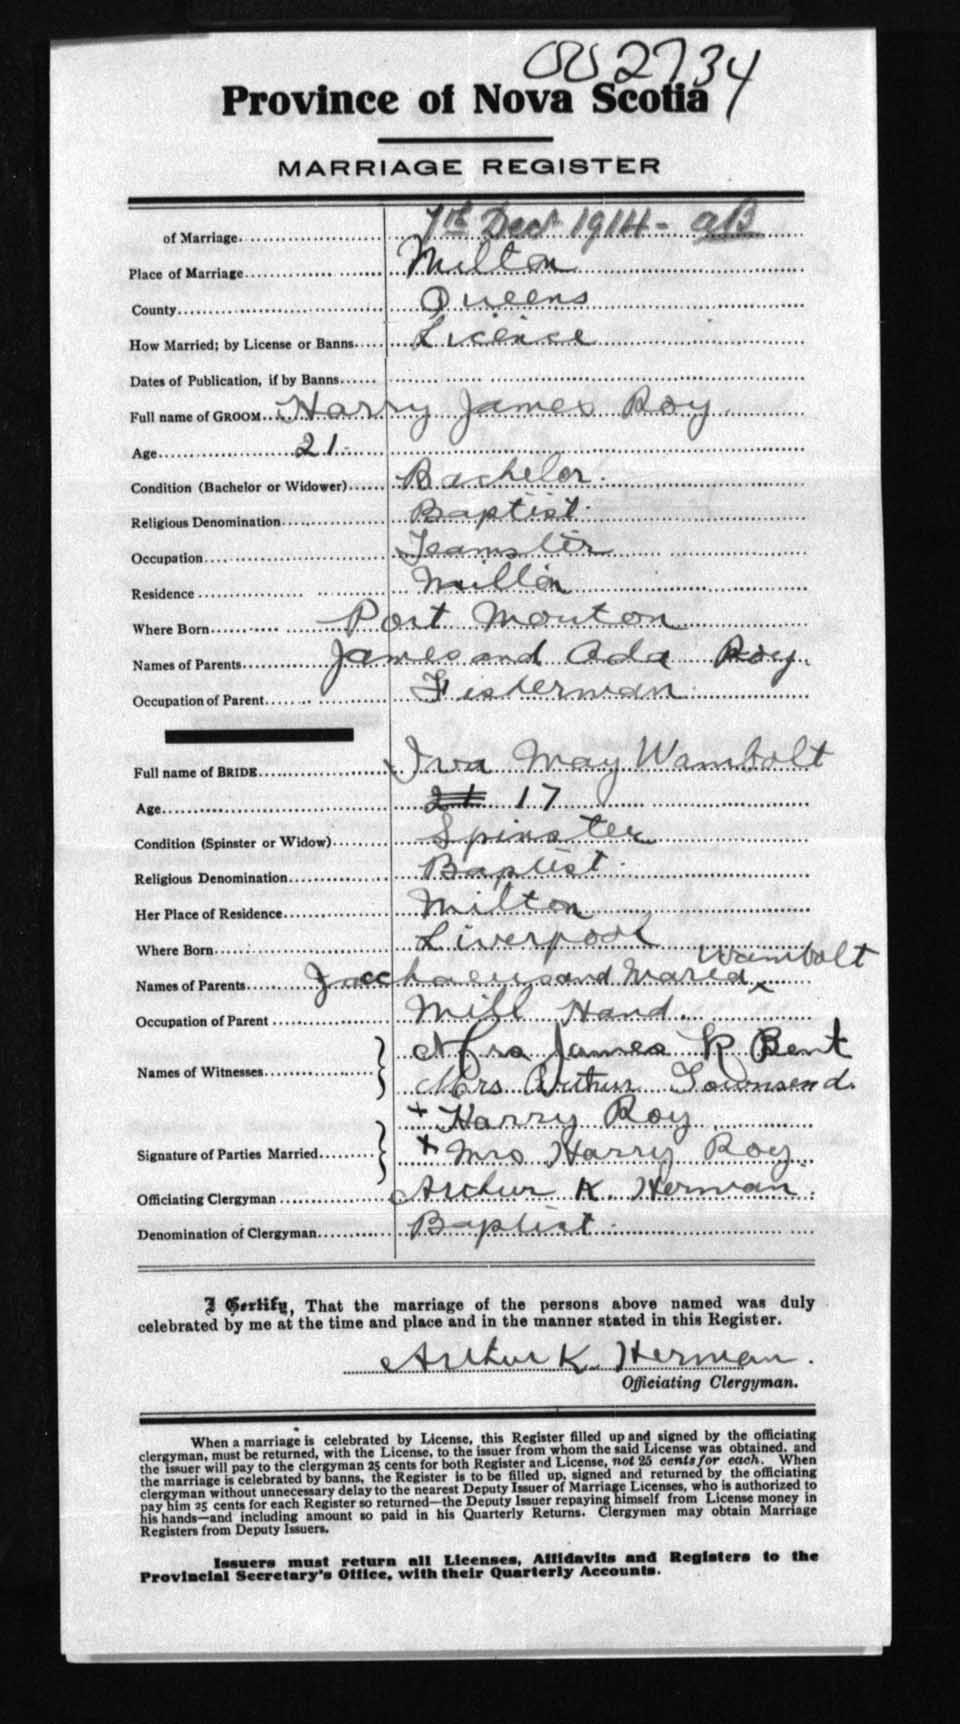 002734
Province of Nova Scotia
MARRIAGE REGISTER
of Marriage 7th Dec 1914 - aB
Place of Marriage Milton
County Queens
How Married; by License or Banns Licence
Dates of Publication, if by Banns
Full name of GROOM Harry James Roy
Age 21
Condition (Bachelor or Widower) Bachelor
Religious Denomination Baptist
Occupation Teamster
Residence Milton
Where Born Port Mouton
Names of Parents James and Ada Roy
Occupation of Parent Fisherman
Full name of BRIDE Iva May Wambolt
Age 21 17
Condition (Spinster or Widow) Spinster
Religious Denomination Baptist
Her Place of Residence Milton
Where Born Liverpool
Names of Parents and Maria Wambolt
Occupation of Parent Mill Hand.
Names of Witnesses Mrs James R Bent
Mrs Arthur Townsend.
+ Harry Roy
Signature of Parties Married + Mrs Harry Roy
Officiating Clergyman Arthur K. Herman.
Denomination of Clergyman Baptist
I Certify, That the marriage of the persons above named was duly
celebrated by me at the time and place and in the manner stated in this Register.
Arthur K. Herman.
Officiating Clergyman.
When a marriage is celebrated by License, this Register filled up and signed by the officiating
clergyman, must be returned, with the License, to the issuer from whom the said License was obtained, and
the issuer will pay to the clergyman 25 cents for both Register and License, not 25 cents for each. When
the marriage is celebrated by banns, the Register is to be filled up, signed and returned by the officiating
clergyman without unnecessary delay to the nearest Deputy Issuer of Marriage Licenses, who is authorized to
pay him 25 cents for each Register so returned—the Deputy Issuer repaying himself from License money in
his hands—and including amount so paid in his Quarterly Returns. Clergymen may obtain Marriage
Registers from Deputy Issuers.
Issuers must return all Licenses, Affidavits and Registers to the
Provincial Secretary's Office, with their Quarterly Accounts.